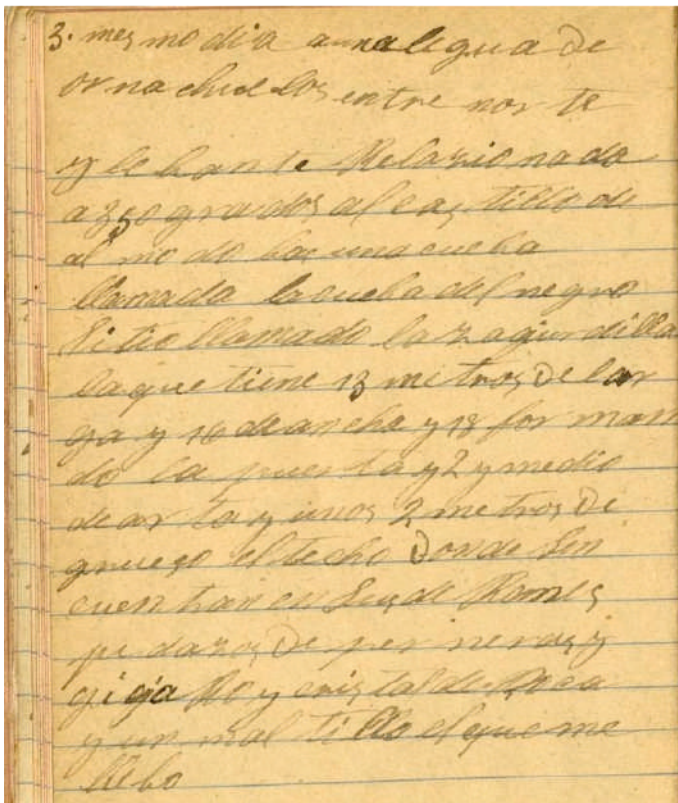 3. mesmo dia aunalegua de
ornachuelos entre norte
y lebante Relazionado
a 350 grados al castillo de
almodobar una cueba
llamada lacueba del negro
Sitio llamado la zagurdilla
laque tiene 13 metros De lar
ga y 16 de ancha y 18 forman
do la puerta y 2 y medio
de arta y unos 2 metros De
grueso el techo Donde Sen
cuentran en Sus de
pedazos De y
gigaRo y cristal de Roca
y un maltillo elque me
llebo